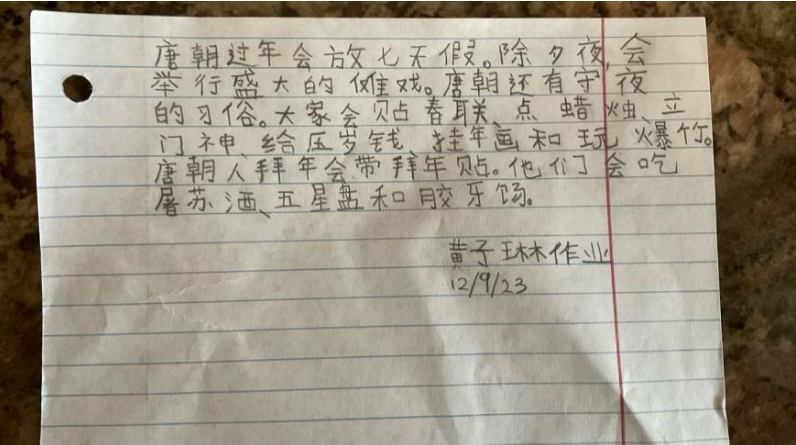 唐朝过年会放七天假。除夕夜,会
举行盛大的傩戏。唐朝还有守夜
的习俗。大家会贴春联、点蜡烛、立
门神、给压岁钱、挂年画和玩爆竹。
唐朝人拜年会带拜年贴。他们会吃
屠苏酒、五星盘和胶牙饧。
黄子琳作业
12/9/23